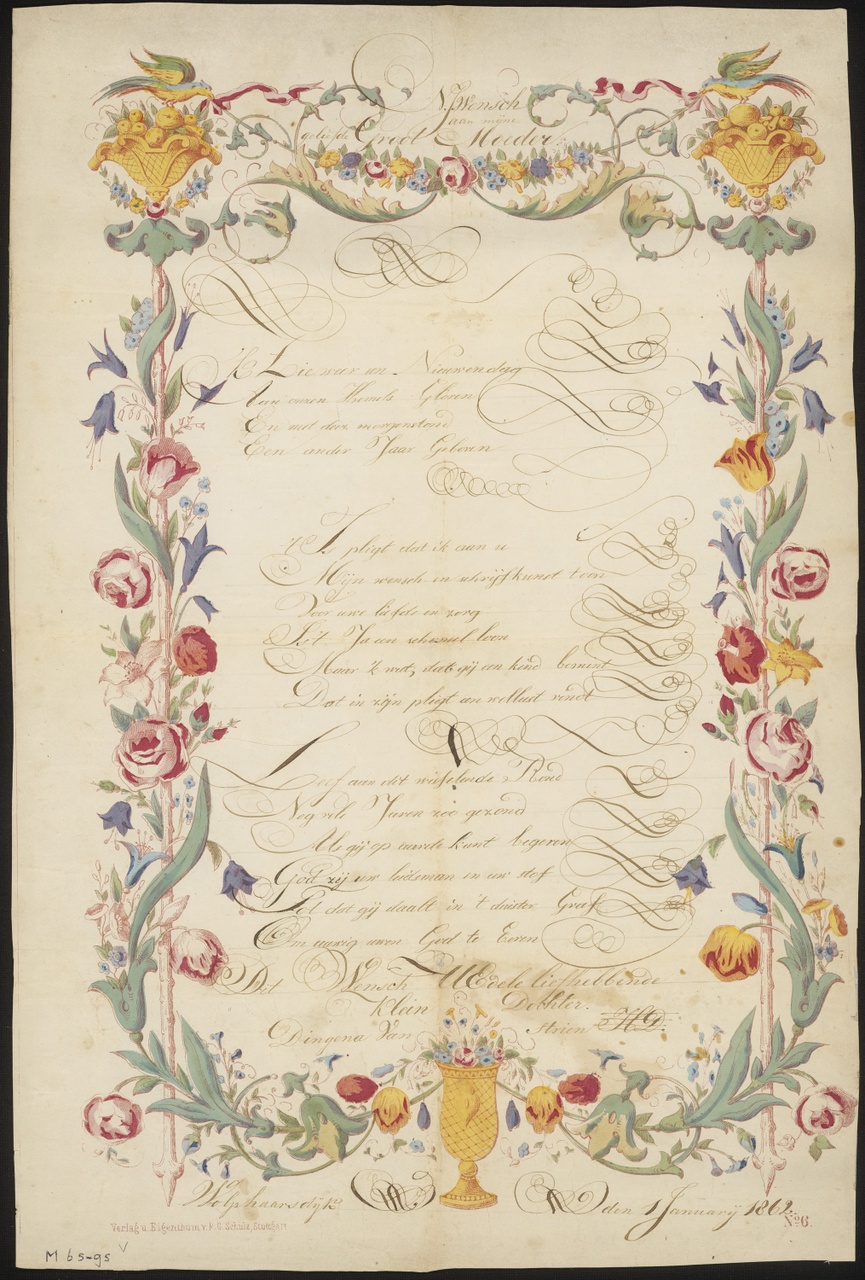 N. Wensch
aan mijne
geliefde Groot Moeder.
Ik Zie weer een Nieuwendag
Aan onzen Hemels Gloren
En met deez morgenstond
Een ander Jaar Geboren
't Is pligt dat ik aan u
Mijn wensch en schrijfkunst toon
Voor uwe liefde en zorg
Is 't Ja een schamel loon
Maar 'k weet, dat gij een kind bemint
Dat in zijn pligt een wellust vindt
Leef aan dit wisselende Rond
Nog vele Jaren zoo gezond
Als gij op aarde kunt begeren
God zij uw leidsman en uw staf
Tot dat gij daalt in 't duister Graf
Om eeuwig uwen God te Eeren
Dit Wensch UEdele liefhebbende
Klein Dochter.
Dingena Van Strien
Wolphaarsdijk den 1 Januarij 1862
Verlag u. Eigenthum v. F. G. Schulz, Stuttgart
No 6.
M 65-95